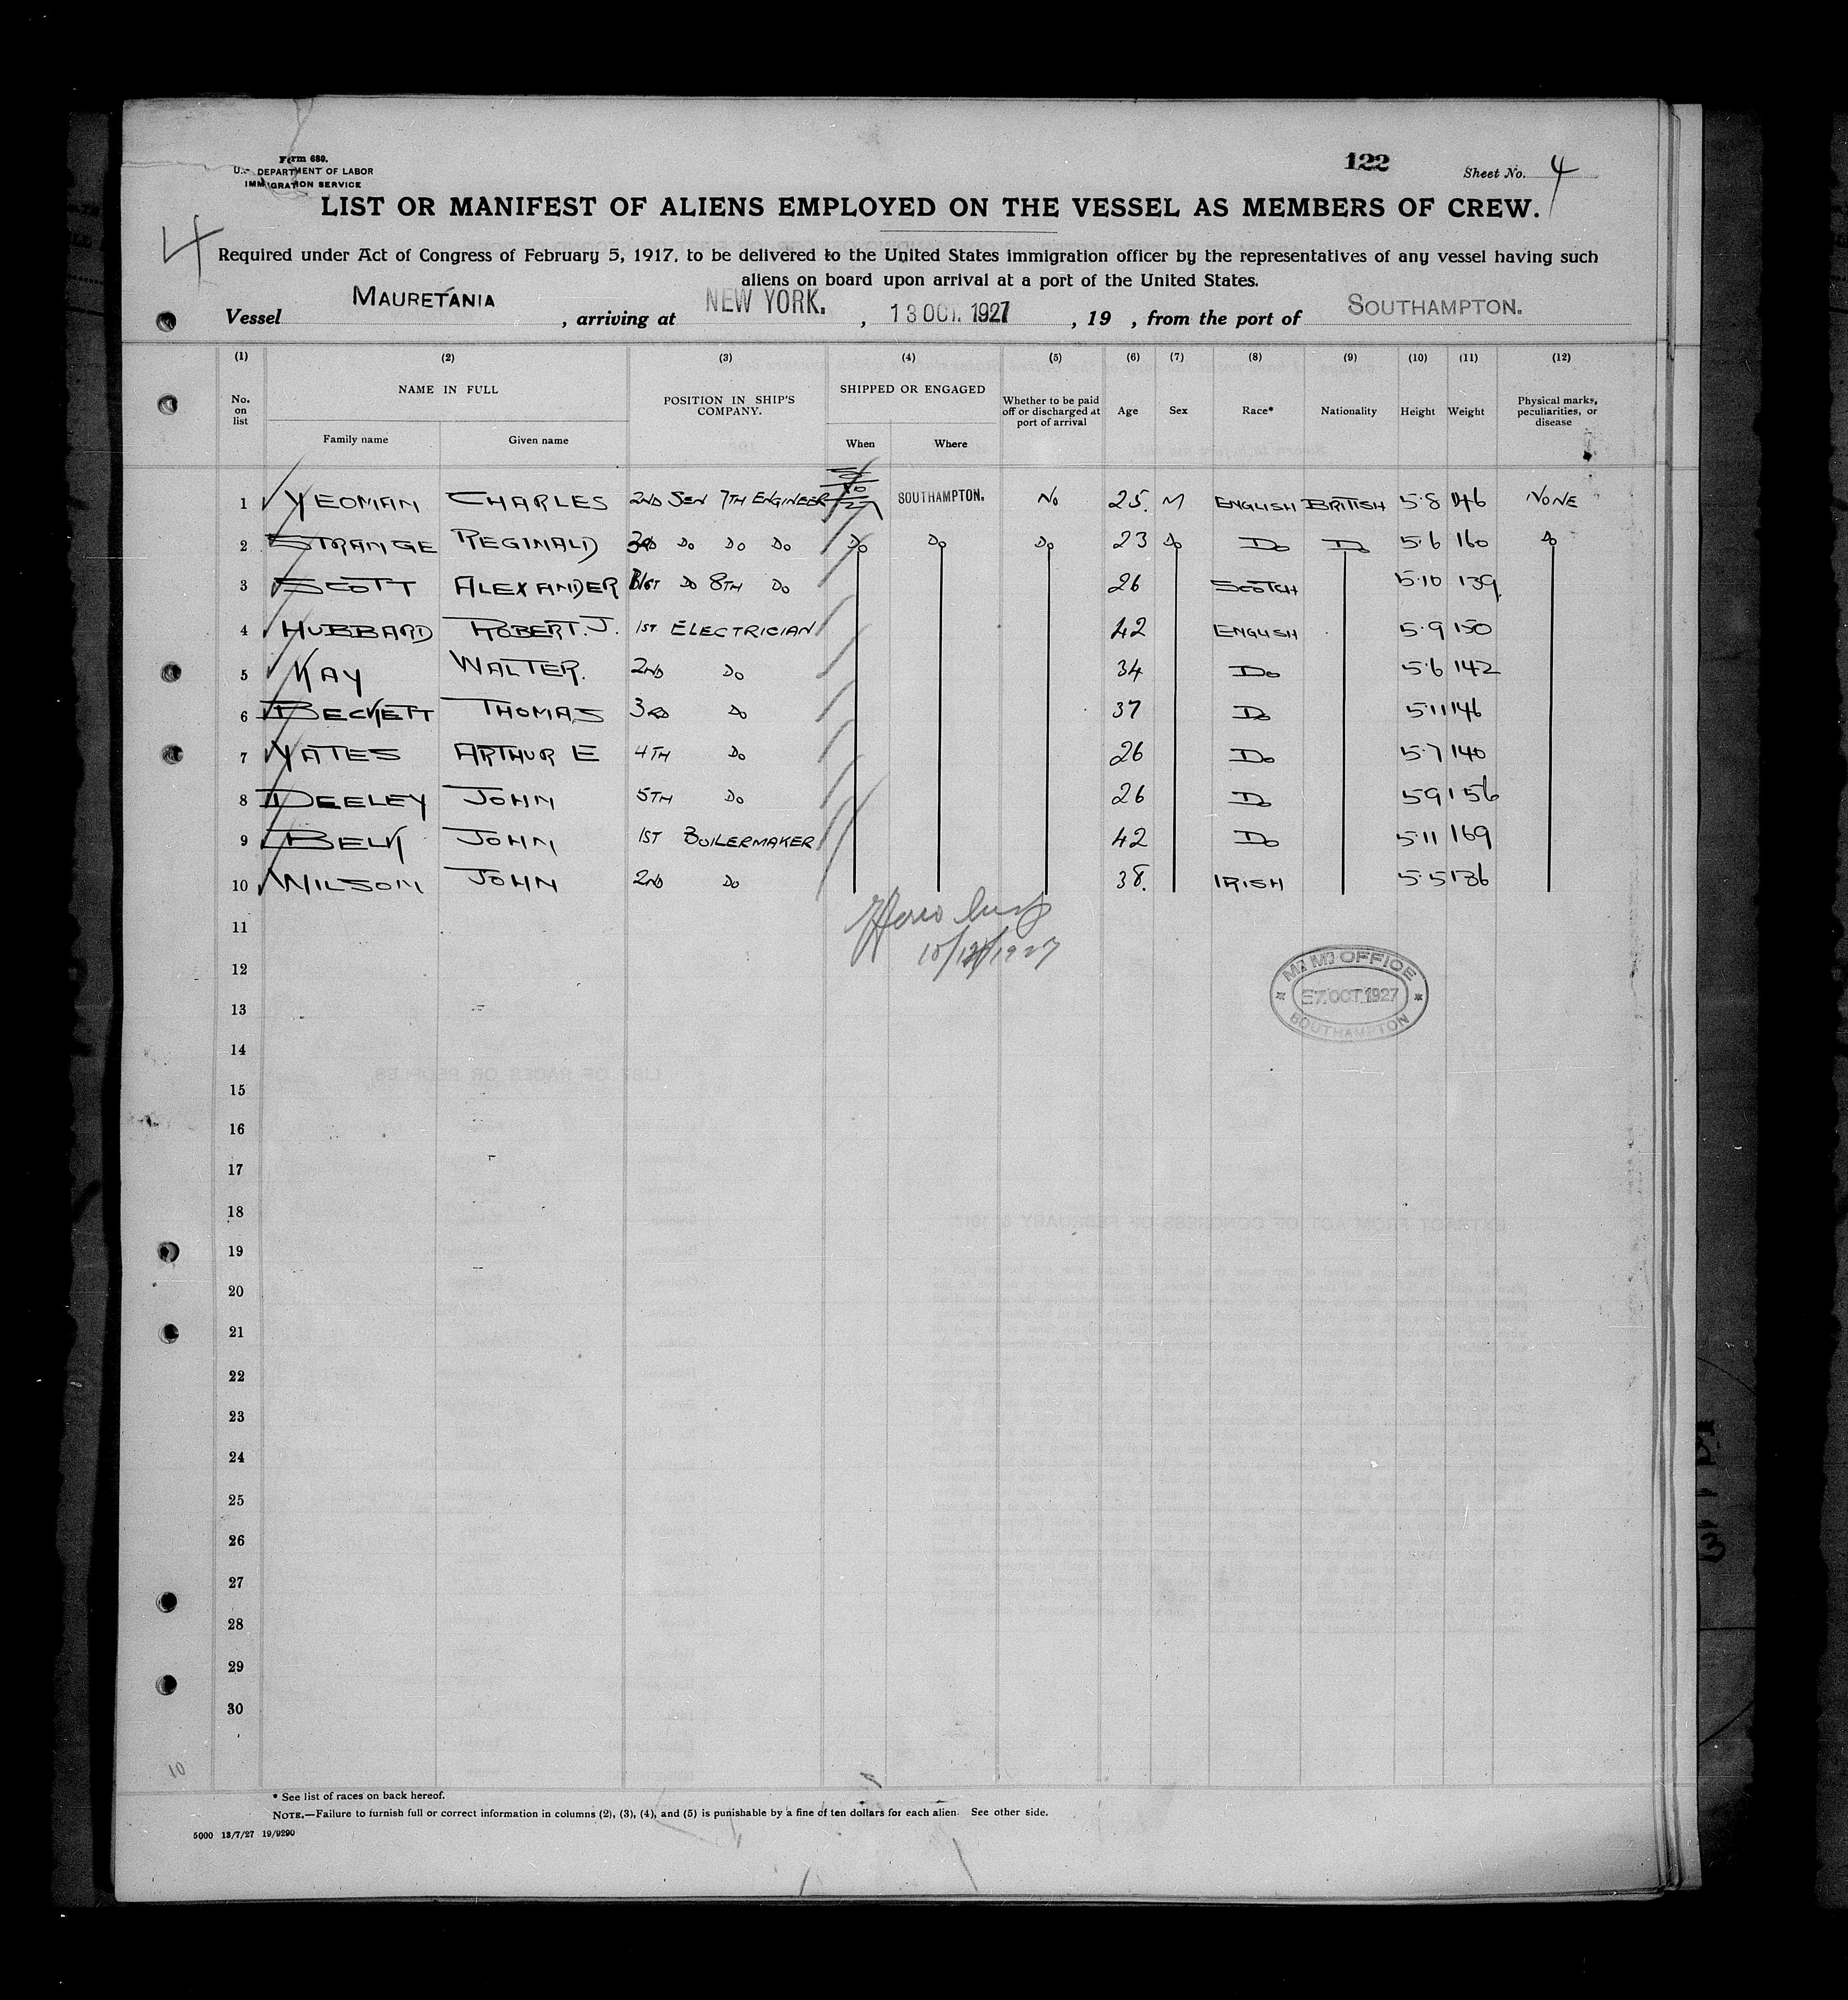 Form 680.
U.S. DEPARTMENT OF LABOR
IMMIGRATION SERVICE
122
Sheet No. 4
LIST OR MANIFEST OF ALIENS EMPLOYED ON THE VESSEL AS MEMBERS OF CREW.
4
Required under Act of Congress of February 5, 1917, to be delivered to the United States immigration officer by the representatives of any vessel having such
aliens on board upon arrival at a port of the United States.
Vessel MAURETANIA, arriving at NEW YORK., 13 OCT. 1927, 19 , from the port of SOUTHAMPTON.
(1) (2) (3) (4) (5) (6) (7) (8) (9) (10) (11) (12)
No. on list NAME IN FULL Family name Given name POSITION IN SHIP'S COMPANY. SHIPPED OR ENGAGED When Where Whether to be paid off or discharged at port of arrival Age Sex Race* Nationality Height Weight Physical marks, peculiarities, or disease
1 YEOMAN CHARLES 2ND SEN 7TH ENGINEER SOUTHAMPTON. NO 25. M ENGLISH BRITISH 5·8 146 NONE
2 STRANGE REGINALD 3RD DO DO DO DO DO DO 23 DO DO DO 5·6 160 DO
3 SCOTT ALEXANDER DO 8TH DO 26 SCOTCH 5·10 139
4 HUBBARD ROBERT. J. 1ST ELECTRICIAN 42 ENGLISH 5·9 150
5 KAY WALTER. 2ND DO 34 DO 5·6 142
6 BECKETT THOMAS 3RD DO 37 DO 5·11 146
7 YATES ARTHUR E 4TH DO 26 DO 5·7 140
8 DEELEY JOHN 5TH DO 26 DO 5 9 156
9 BELK JOHN 1ST BOILERMAKER 42 DO 5·11 169
10 WILSON JOHN 2ND DO 38. IRISH 5·5 136
11
12
M.M. OFFICE
OCT. 1927
SOUTHAMPTON
13
14
15
16
17
18
19
20
21
22
23
24
25
26
27
28
29
30
10
* See list of races on back hereof.
NOTE.—Failure to furnish full or correct information in columns (2), (3), (4), and (5) is punishable by a fine of ten dollars for each alien. See other side.
5000 13/7/27 19/9290